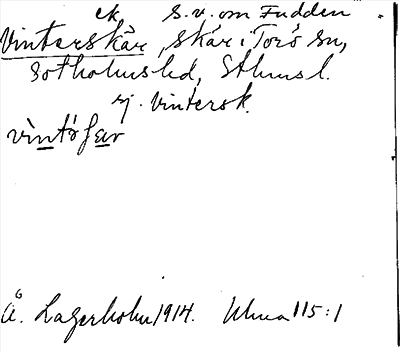 ek S.v. om Fudden
Vinterskär, skär i Torö sn,
Sotholms hd, Sthms l.
ej. Vintersk.
vintòʃar
Å. Lagerholm 1914. Uhma 115:1